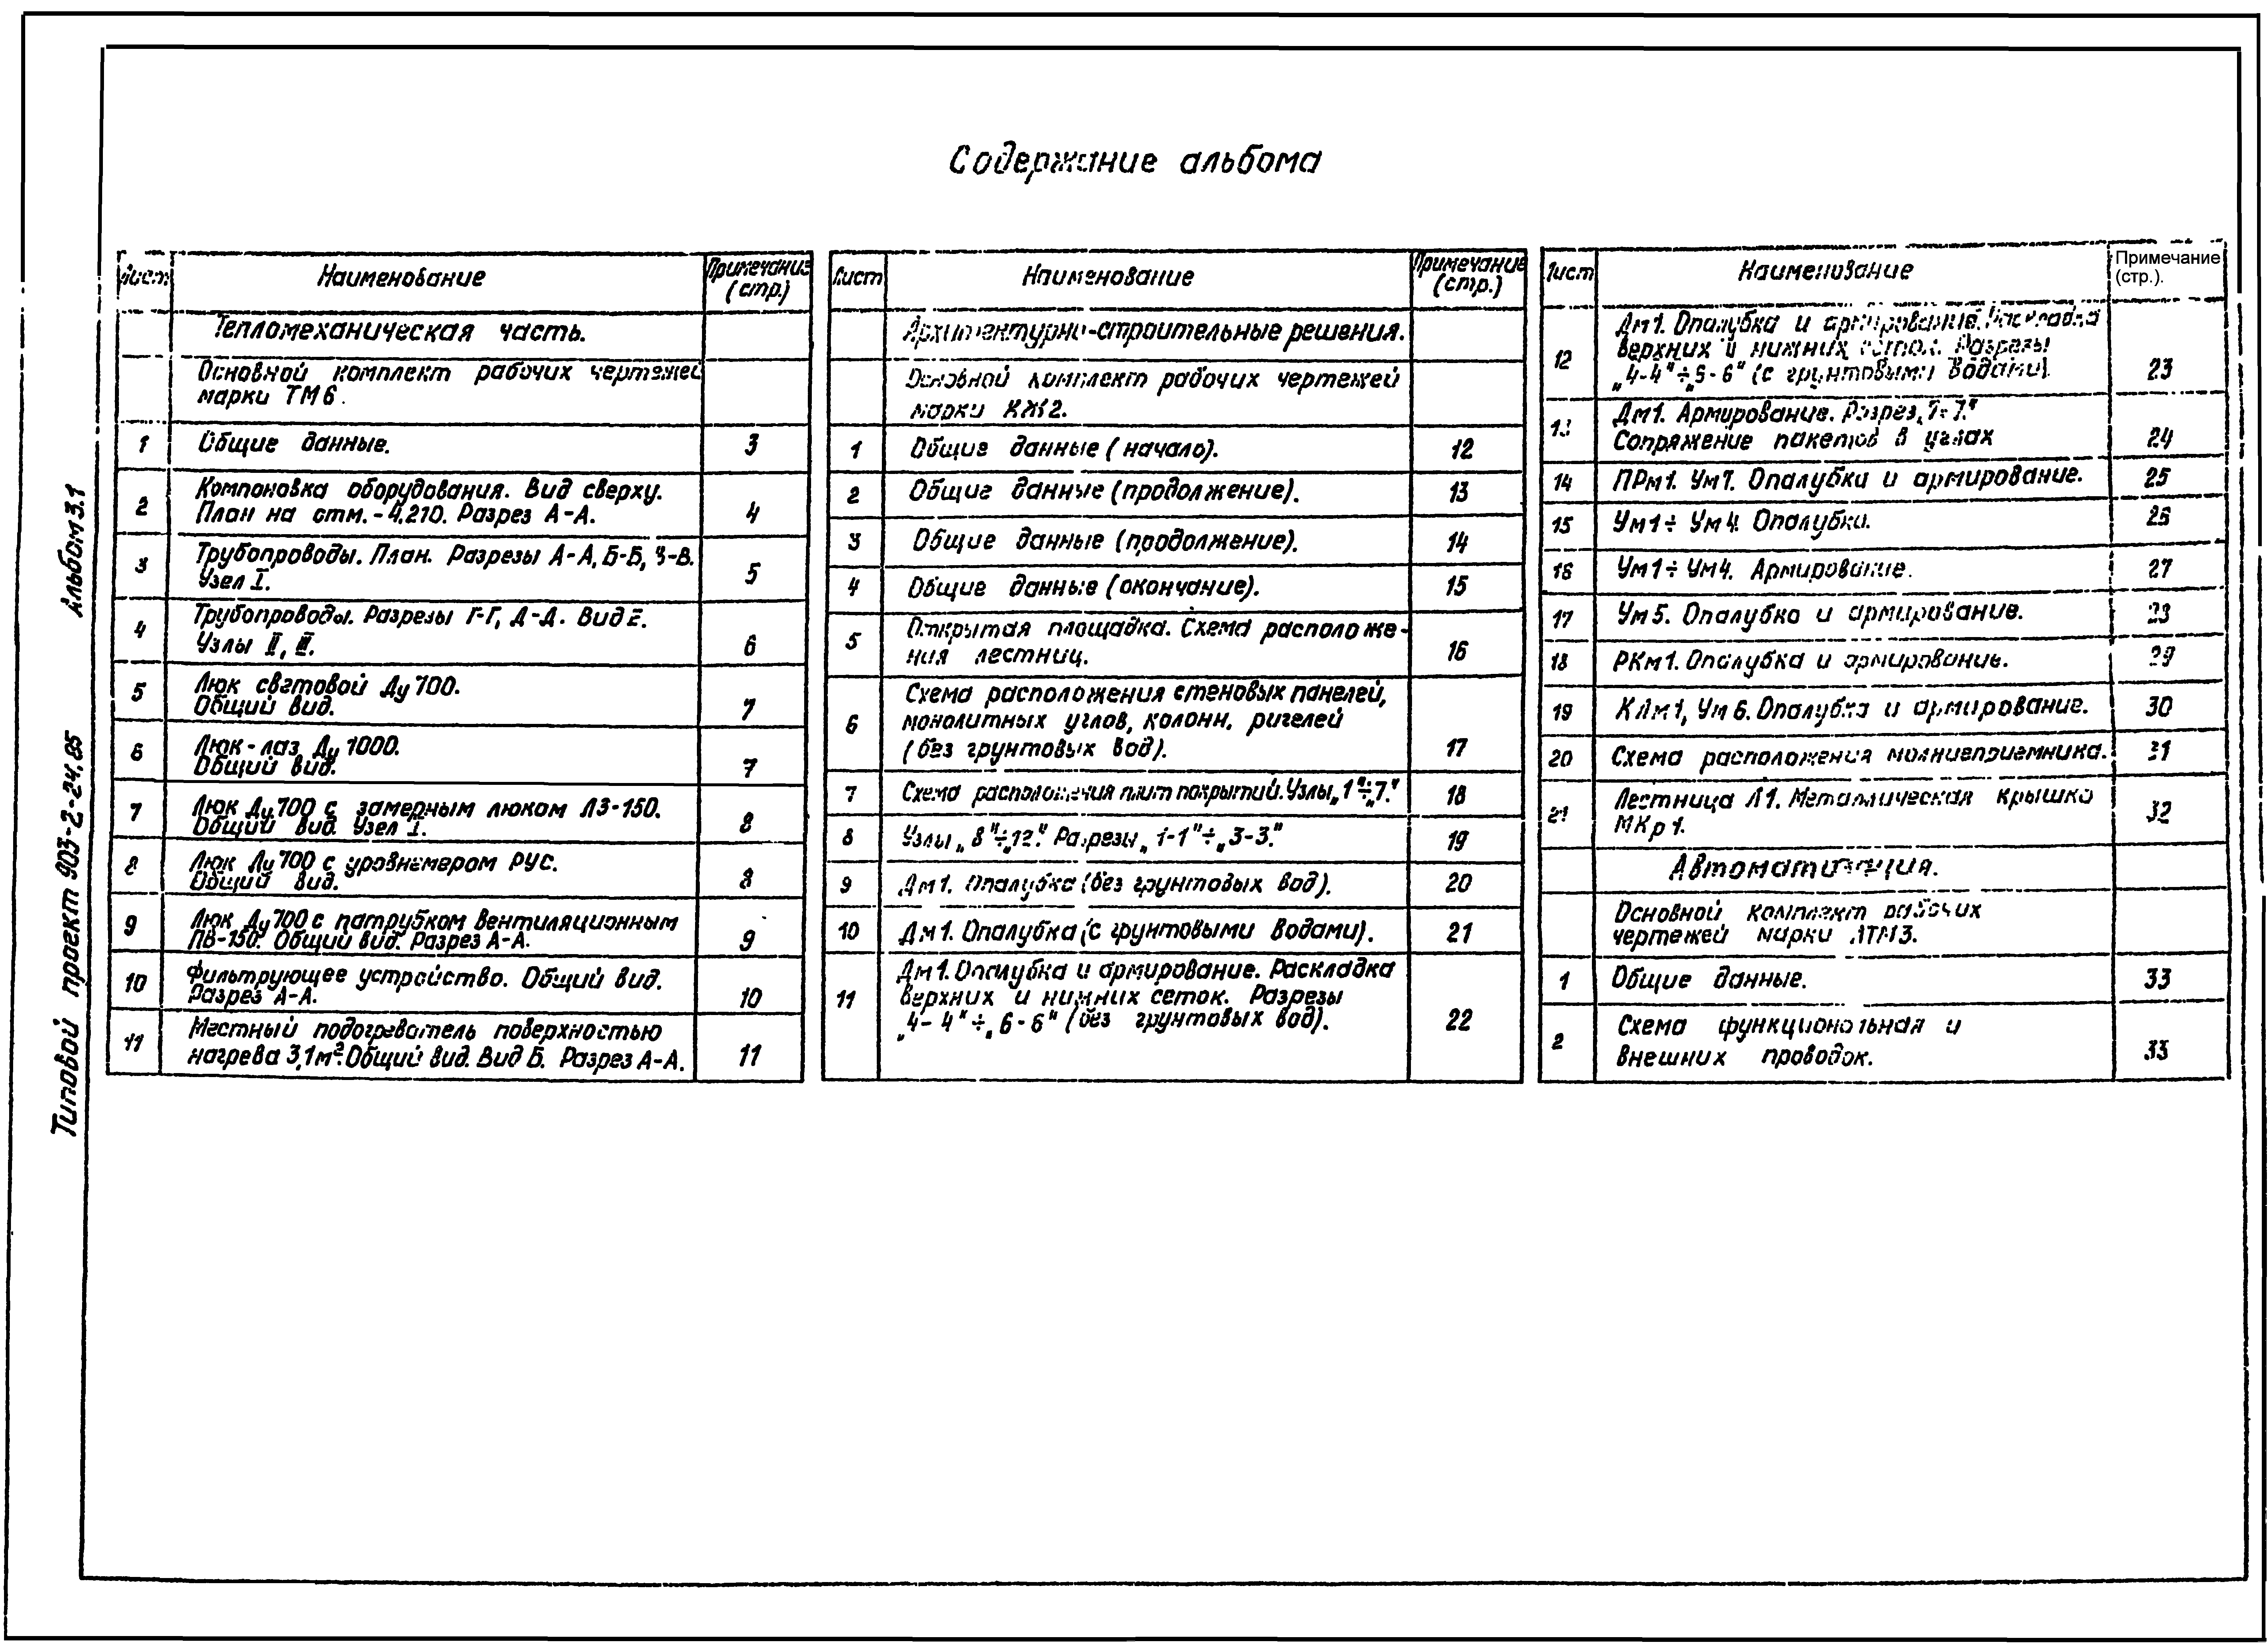 Содержание альбома
Альбом 3.1
Типовой проект 903-2-24.85
Лист Наименование Примечание (стр.)
Тепломеханическая часть.
Основной комплект рабочих чертежей
марки ТМ6.
1 Общие данные. 3
2 Компоновка оборудования. Вид сверху.
План на отм. -4.210. Разрез А-А. 4
3 Трубопроводы. План. Разрезы А-А, Б-Б, В-В.
Узел I. 5
4 Трубопроводы. Разрезы Г-Г, Д-Д. Вид Е.
Узлы II, III. 6
5 Люк световой Ду 700.
Общий вид. 7
6 Люк-лаз Ду 1000.
Общий вид. 7
7 Люк Ду 700 с замерным люком ЛЗ-150.
Общий вид. Узел I. 8
8 Люк Ду 700 с уровнемером РУС.
Общий вид. 8
9 Люк Ду 700 с патрубком вентиляционным
ПВ-150. Общий вид. Разрез А-А. 9
10 Фильтрующее устройство. Общий вид.
Разрез А-А. 10
11 Местный подогреватель поверхностью
нагрева 3,1м². Общий вид. Вид Б. Разрез А-А. 11
Лист Наименование Примечание (стр.)
Архитектурно-строительные решения.
Основной комплект рабочих чертежей
марки КЖ2.
1 Общие данные (начало). 12
2 Общие данные (продолжение). 13
3 Общие данные (продолжение). 14
4 Общие данные (окончание). 15
5 Открытая площадка. Схема расположе-
ния лестниц. 16
6 Схема расположения стеновых панелей,
монолитных углов, колонн, ригелей
(без грунтовых вод). 17
7 Схема расположения плит покрытий. Узлы „1"÷„7." 18
8 Узлы „8"÷„12." Разрезы „1-1"÷„3-3." 19
9 Дм1. Опалубка (без грунтовых вод). 20
10 Дм1. Опалубка (с грунтовыми водами). 21
11 Дм1. Опалубка и армирование. Раскладка
верхних и нижних сеток. Разрезы
„4-4"÷„6-6" (без грунтовых вод). 22
Лист Наименование Примечание (стр.).
12 Дм1. Опалубка и армирование. Раскладка
верхних и нижних сеток. Разрезы
„4-4"÷„6-6" (с грунтовыми водами). 23
13 Дм1. Армирование. Разрез „7-7."
Сопряжение пакетов в углах 24
14 ПРм1. Ум7. Опалубка и армирование. 25
15 Ум1÷Ум4. Опалубка. 26
16 Ум1÷Ум4. Армирование. 27
17 Ум5. Опалубка и армирование. 28
18 РКм1. Опалубка и армирование. 29
19 КЛм1, Ум6. Опалубка и армирование. 30
20 Схема расположения молниеприемника. 31
21 Лестница Л1. Металлическая крышка
МКр1. 32
Автоматизация.
Основной комплект рабочих
чертежей марки АТМ3.
1 Общие данные. 33
2 Схема функциональная и
внешних проводок. 33